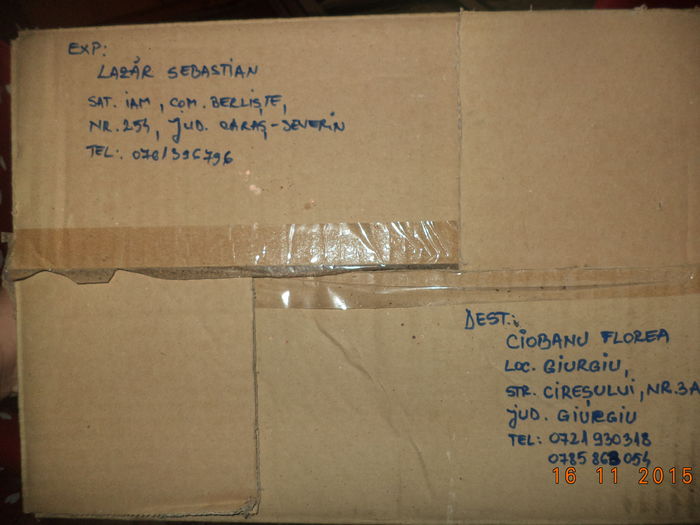 EXP:
LAZĂR SEBASTIAN
SAT. IAM, COM. BERLIȘTE,
NR. 254, JUD. CARAȘ-SEVERIN
TEL: 0761396796
DEST.:
CIOBANU FLOREA
LOC. GIURGIU,
STR. CIREȘULUI, NR. 3A
JUD. GIURGIU
TEL: 0721930318
0785 868 054
16 11 2015